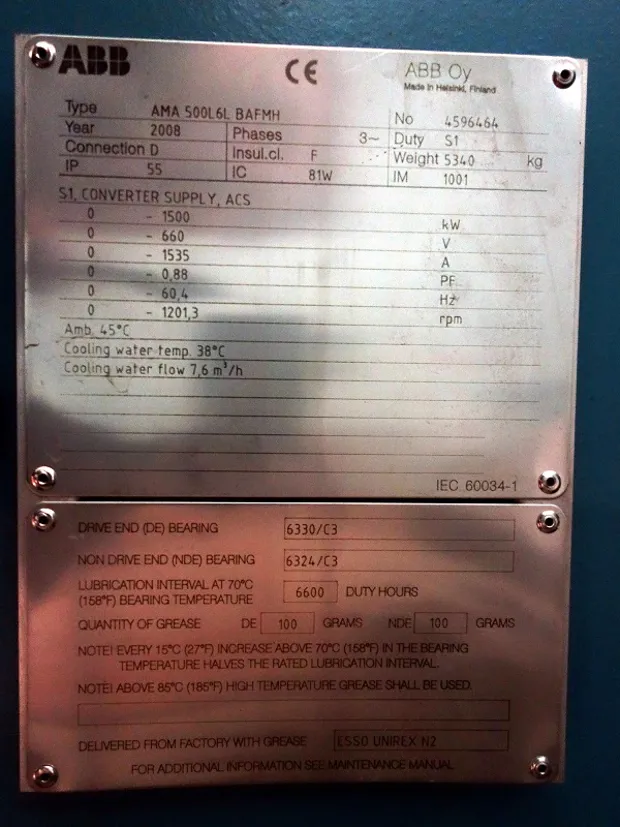 ABB CE ABB Oy
Made in Helsinki, Finland
Type AMA 500L6L BAFMH No 4596464
Year 2008 Phases 3~ Duty S1
Connection D Insul.cl. F Weight 5340 kg
IP 55 IC 81W IM 1001
S1, CONVERTER SUPPLY, ACS
0 - 1500 kW
0 - 660 V
0 - 1535 A
0 - 0,88 PF
0 - 60,4 Hz
0 - 1201,3 rpm
Amb. 45°C
Cooling water temp. 38°C
Cooling water flow 7,6 m³/h
IEC 60034-1
DRIVE END (DE) BEARING 6330/C3
NON DRIVE END (NDE) BEARING 6324/C3
LUBRICATION INTERVAL AT 70°C
(158°F) BEARING TEMPERATURE 6600 DUTY HOURS
QUANTITY OF GREASE DE 100 GRAMS NDE 100 GRAMS
NOTE! EVERY 15°C (27°F) INCREASE ABOVE 70°C (158°F) IN THE BEARING
TEMPERATURE HALVES THE RATED LUBRICATION INTERVAL.
NOTE! ABOVE 85°C (185°F) HIGH TEMPERATURE GREASE SHALL BE USED.
DELIVERED FROM FACTORY WITH GREASE ESSO UNIREX N2
FOR ADDITIONAL INFORMATION SEE MAINTENANCE MANUAL